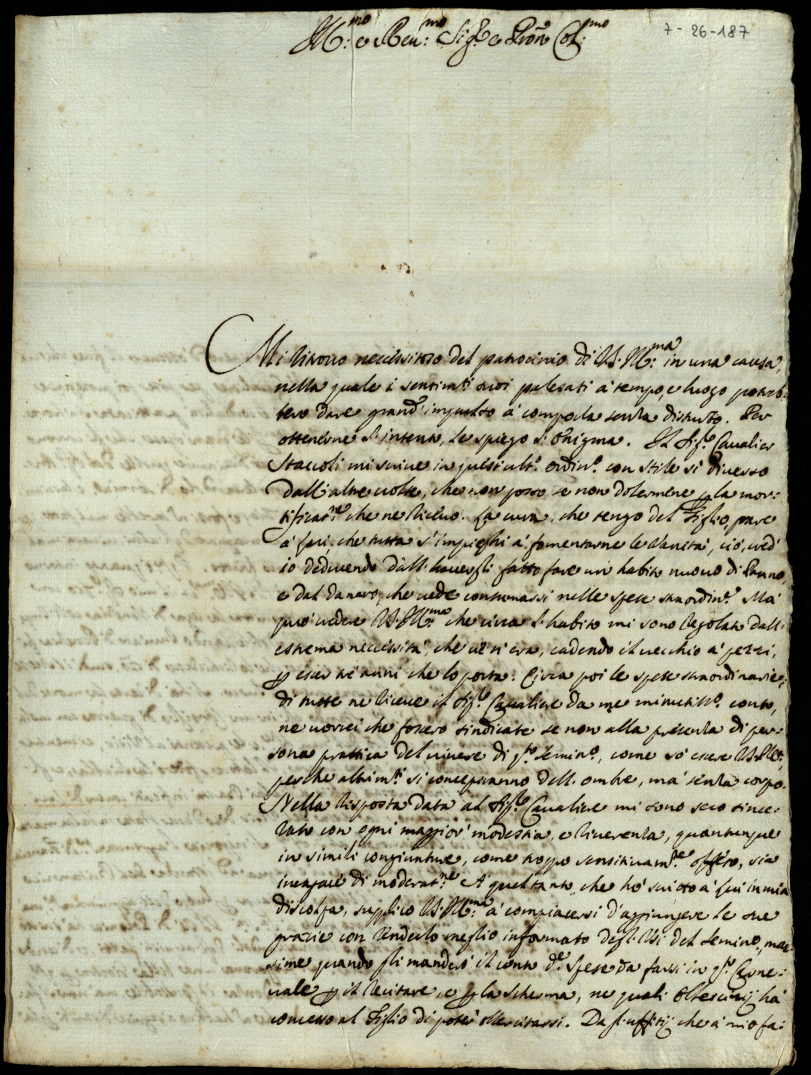 7-26-187
Ill:mo e Rev:mo Sig.r e Pron Col:mo
Mi ritrovo necessitoso del patrocinio di V.S. Ill:ma in una causa,
nella quale i sentim.ti suoi palesati à tempo, e luogo potreb-
bero dare grand'impulso à comporla senza disturbo. Per
ottenerne l'intento, le spiego l'Enigma. Il Sig.r Cavalier
Staccoli mi scrive in quest'ult.o ordin.o con stile sì diverso
dall'altre volte, che non posso se non dolermene p la mor-
tificat.ne che ne ricevo. La cura, che tengo del Figlio, pare
à lui, che tutta s'impieghi à fomentarne le Vanità, ciò, cred'
io deducendo dall'havergli fatto fare un habito nuovo di Panno,
e dal danaro, che vede consumarsi nelle spese straordin.e Mà
può credere V.S. Ill:ma che circa l'habito mi sono regolato dall'
estrema necessità, che vi era, cadendo il vecchio à pezzi,
p esser trè anni che lo porta. Circa poi le spese straordinarie,
di tutte ne riceve il Sig.r Cavaliere da me minutiss.o conto,
ne vorrei che fossero sindicate se non alla presenza di per-
sona prattica del vivere di q.to Semin.o, come sò essere V.S. Ill:
perche altrim.ti si conceperanno dell'ombre, mà senza corpo.
Nella risposta data al Sig.r Cavaliere mi sono seco since-
rato con ogni maggior modestia, e riverenza, quantunque
in simili congiunture, come troppo sensitivam.te offero, sia
incapace di moderat.ne A quel tanto, che hò scritto à lui in mia
discolpa, supplico V.S. Ill:ma à compiacersi d'aggiungere le sue
grazie con renderlo meglio informato degl'Usi del Semin.o, mas-
sime quando gli manderò il conto d.e spese da farsi in q.to Carne-
vale p il recitare, e p la scherma, ne quali Oltescinj hà
concesso al Figlio di poter essercitarsi. Dagl'uffitij che à mio fa: